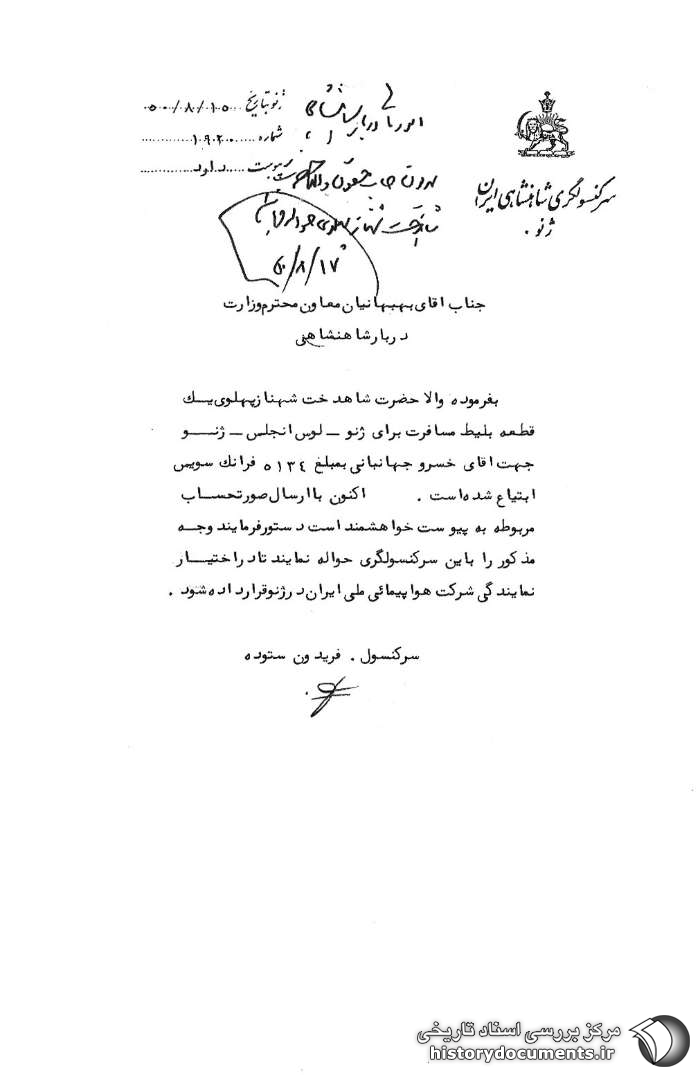 سرکنسولگری شاهنشاهی ایران
ژنو.
ژنو بتاریخ ۵۰/۸/۱۵
شماره ۱۹۲۰
پیوست دارد
امور مالی دربار شاهنشاهی
۵۰/۸/۱۷
جناب اقای بهبهانیان معاون محترم وزارت
دربار شاهنشاهی
بفرموده والا حضرت شاهدخت شهناز پهلوی یك
قطعه بلیط مسافرت برای ژنو ـ لوس انجلس ـ ژنو
جهت اقای خسرو جهانبانی بمبلغ ۵۱۳٤ فرانك سویس
ابتیاع شده است . اکنون با ارسال صورتحساب
مربوطه به پیوست خواهشمند است دستور فرمایند وجه
مذکور را باین سرکنسولگری حواله نمایند تا در اختیار
نمایندگی شرکت هواپیمائی ملی ایران در ژنو قرار داده شود .
سرکنسول . فریدون ستوده
مرکز بررسی اسناد تاریخی
historydocuments.ir